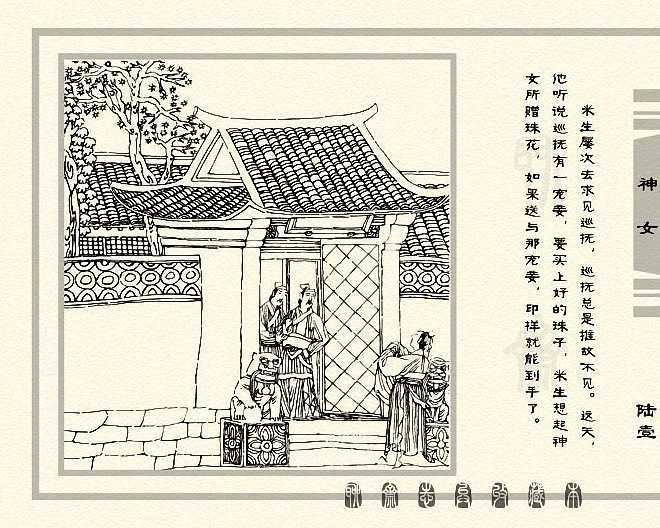 米生屡次去求见巡抚，巡抚总是推故不见。这天，
他听说巡抚有一宠妾，要买上好的珠子，米生想起神
女所赠珠花，如果送与那宠妾，印样就能到手了。
神女
陆壹
聊斋志异收藏本